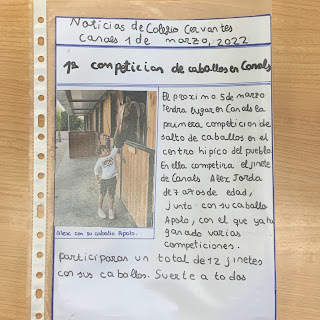 Noticias de Colegio Cervantes
Canals 1 de marzo, 2022
1ª competicion de caballos en Canals
El proximo 5 de marzo
tendra lugar en Canals la
primera competicion de
salto de caballos en el
centro hipico del pueblo.
En ella competira el jinete
de Canals Alex Jorda
de 7 años de edad,
junto con su caballo
Apolo, con el que ya ha
ganado varias
competiciones.
Alex con su caballo Apolo.
participaran un total de 12 jinetes
con sus caballos. Suerte a todos